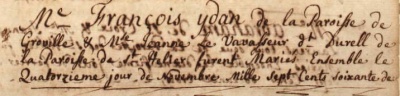 Mr. François ydan de la Paroisse de
Groville & Mlle Jeanne Le Vavasseur dt Durell de
la Paroisse de St. Helier furent Mariés Ensemble le
Quatorzieme jour de Novembre Mille Sept Cents Soixante de